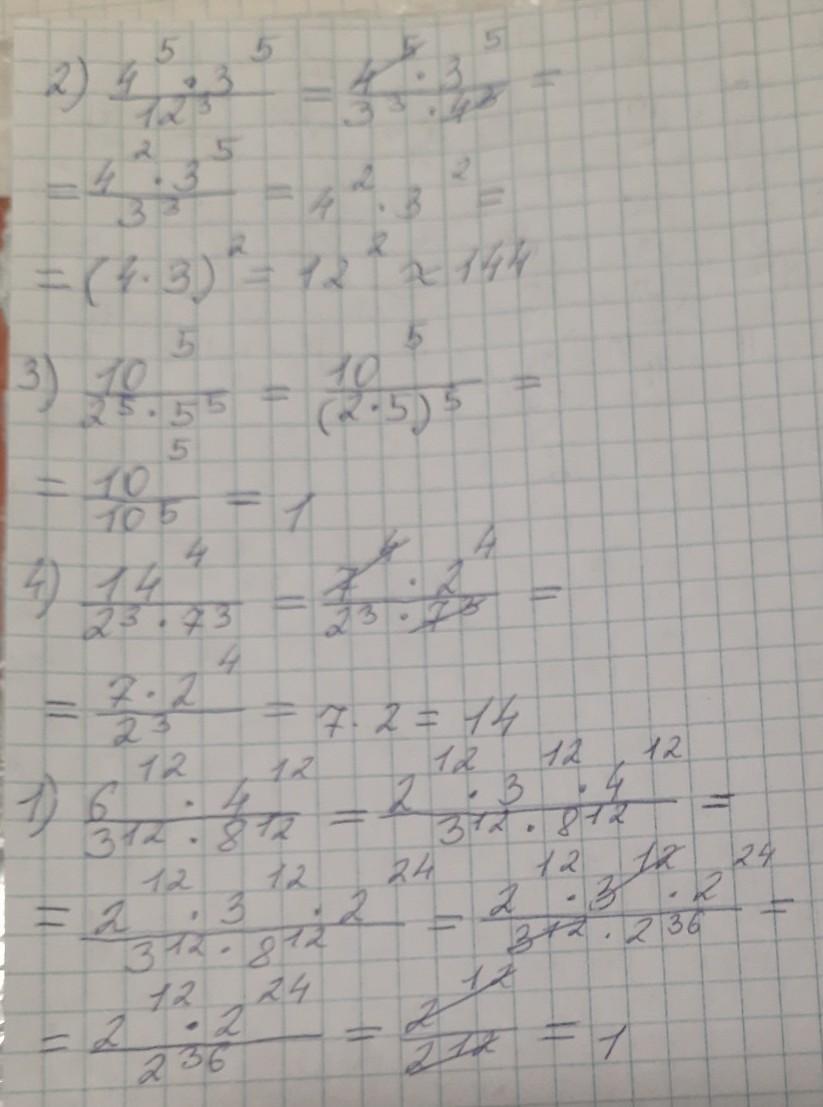 2) 4^5 · 3^5 / 12^3 = 4^5 · 3^5 / 3^3 · 4^3 =
= 4^2 · 3^5 / 3^3 = 4^2 · 3^2 =
= (4 · 3)^2 = 12^2 ≈ 144
3) 10^5 / 2^5 · 5^5 = 10^5 / (2 · 5)^5 =
= 10^5 / 10^5 = 1
4) 14^4 / 2^3 · 7^3 = 7^4 · 2^4 / 2^3 · 7^3 =
= 7 · 2^4 / 2^3 = 7 · 2 = 14
1) 6^12 · 4^12 / 3^12 · 8^12 = 2^12 · 3^12 · 4^12 / 3^12 · 8^12 =
= 2^12 · 3^12 · 2^24 / 3^12 · 8^12 = 2^12 · 3^12 · 2^24 / 3^12 · 2^36 =
= 2^12 · 2^24 / 2^36 = 2^12 / 2^12 = 1